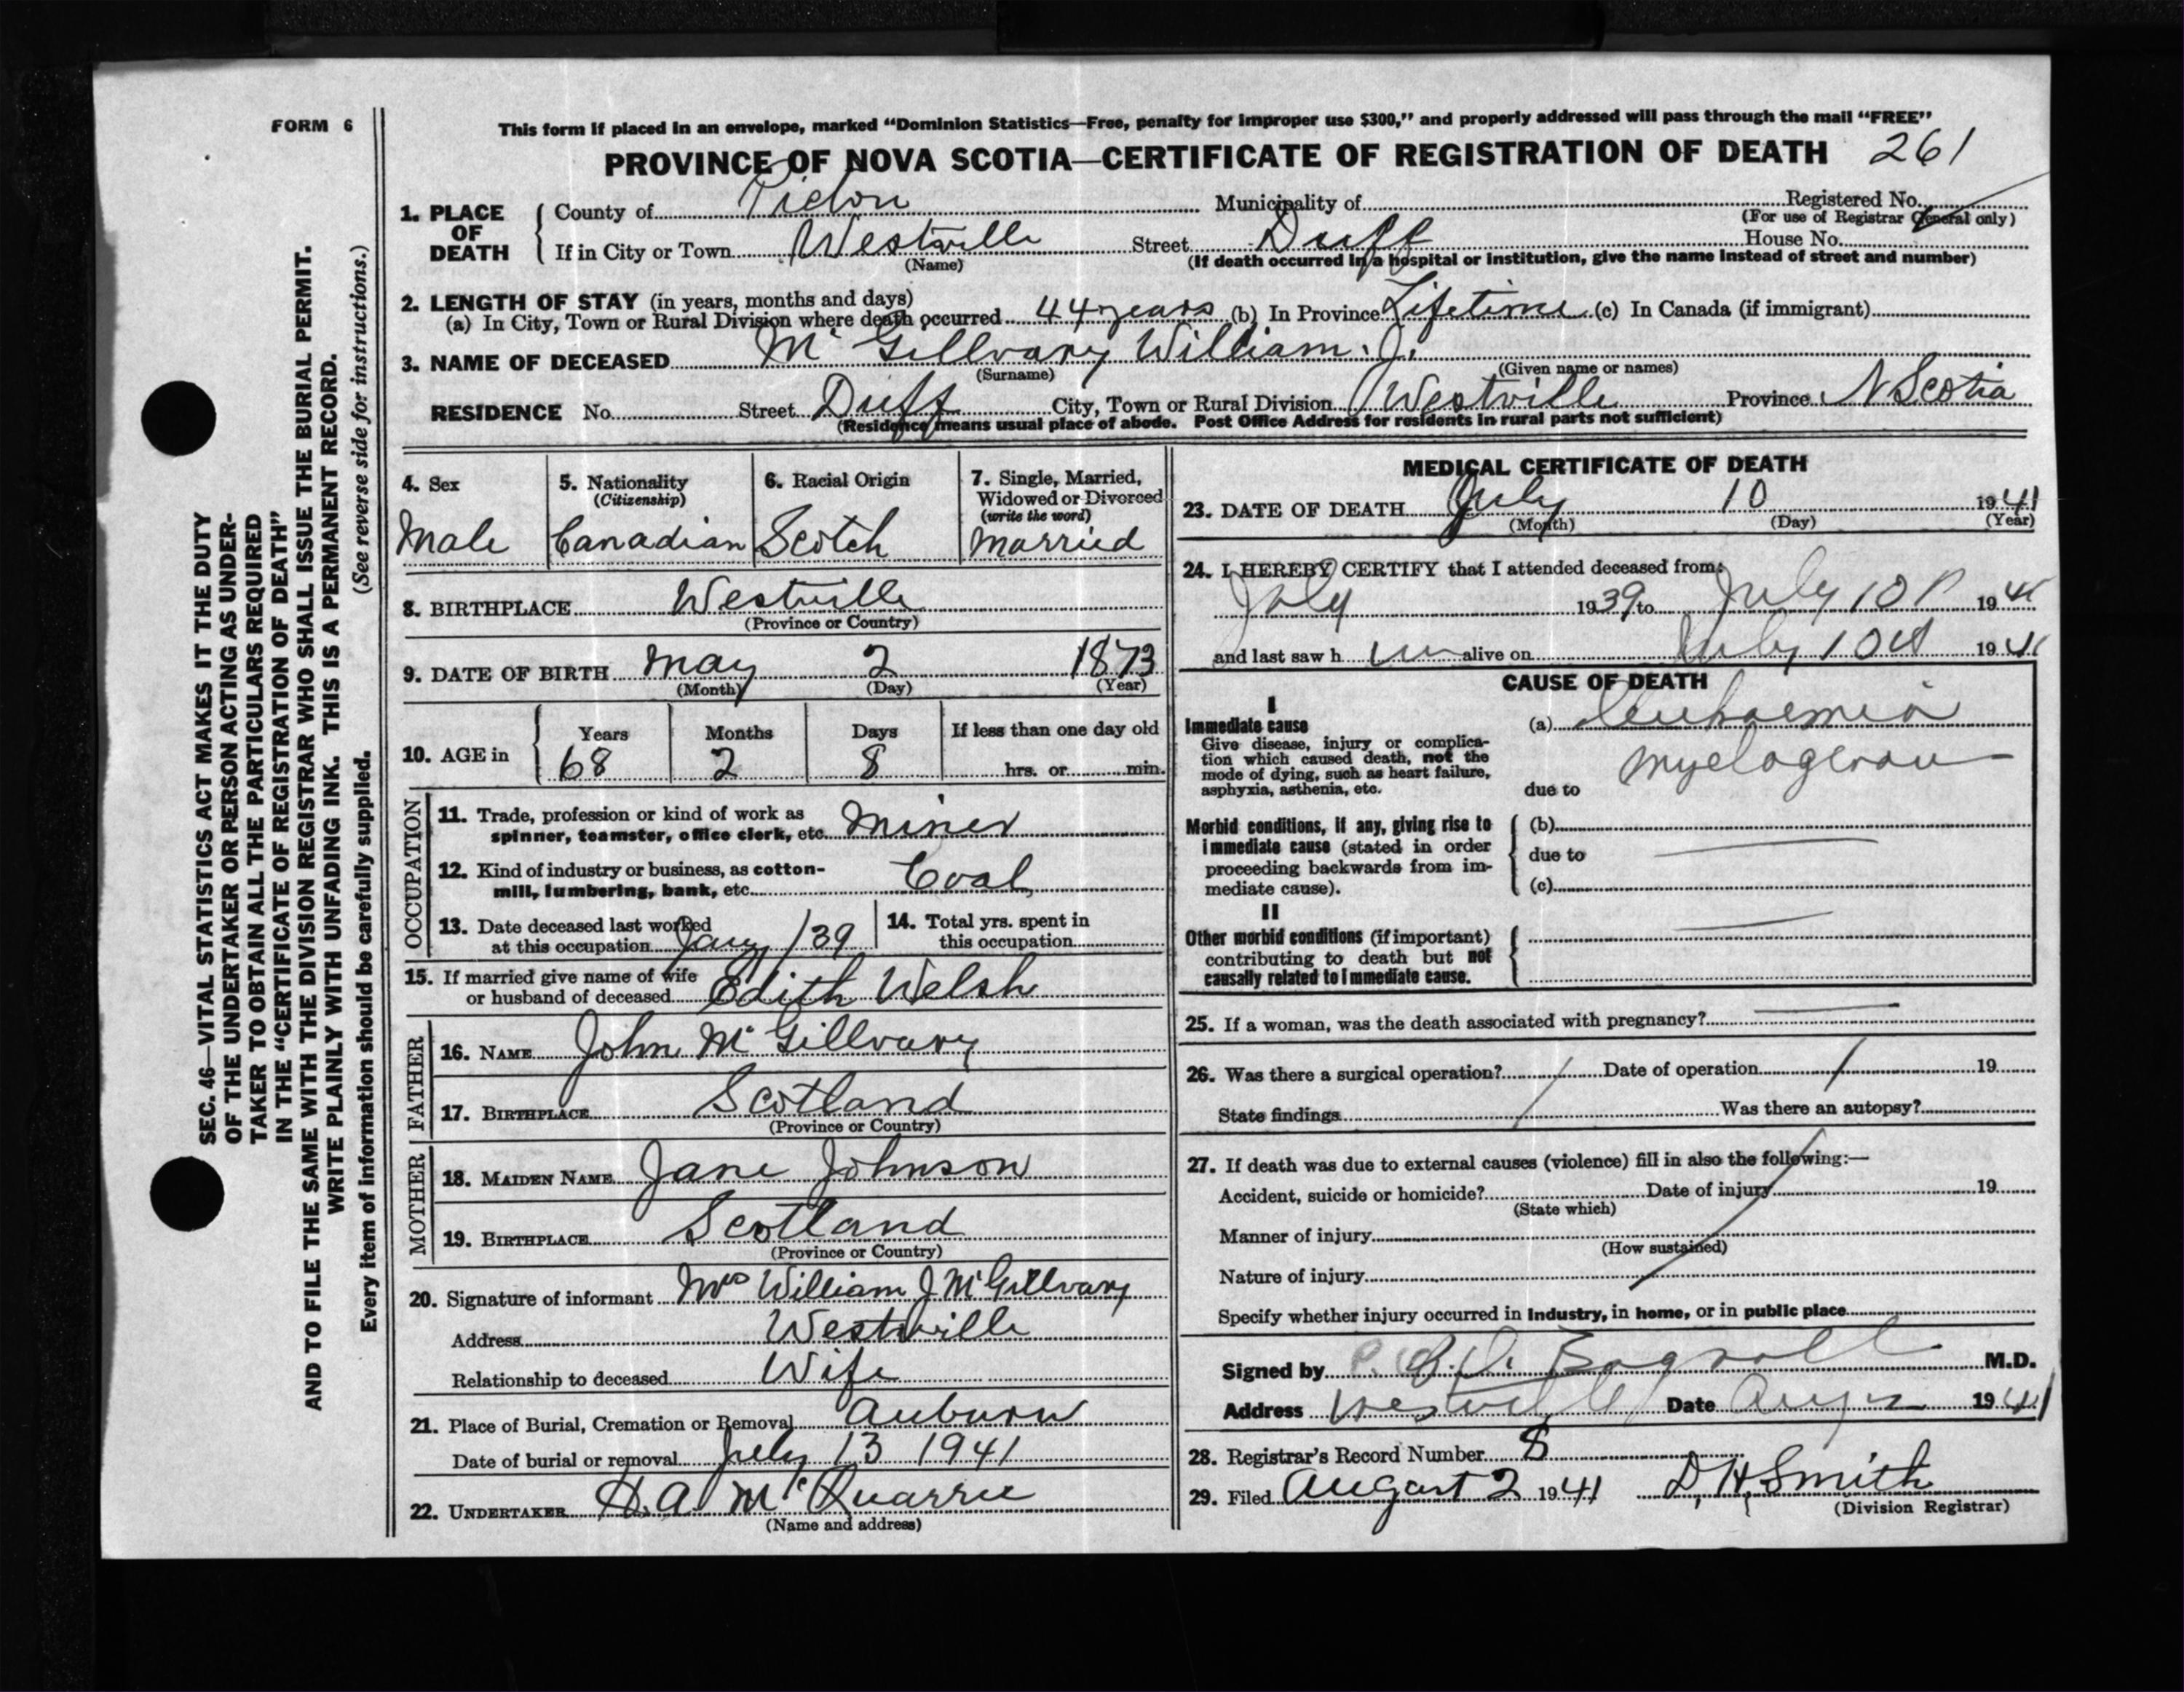 FORM 6
This form if placed in an envelope, marked “Dominion Statistics—Free, penalty for improper use $300,” and properly addressed will pass through the mail “FREE”
PROVINCE OF NOVA SCOTIA—CERTIFICATE OF REGISTRATION OF DEATH 261
1. PLACE OF DEATH
County of Pictou Municipality of Registered No.
(For use of Registrar General only)
If in City or Town Westville Street Duff House No.
(Name) (If death occurred in a hospital or institution, give the name instead of street and number)
2. LENGTH OF STAY (in years, months and days)
(a) In City, Town or Rural Division where death occurred 44 years (b) In Province Lifetime (c) In Canada (if immigrant)
3. NAME OF DECEASED McGillvary William. J.
(Surname) (Given name or names)
RESIDENCE No. Street Duff City, Town or Rural Division Westville Province N Scotia
(Residence means usual place of abode. Post Office Address for residents in rural parts not sufficient)
4. Sex
Male
5. Nationality
(Citizenship)
Canadian
6. Racial Origin
Scotch
7. Single, Married,
Widowed or Divorced
(write the word)
Married
8. BIRTHPLACE Westville
(Province or Country)
9. DATE OF BIRTH May 2 1873
(Month) (Day) (Year)
10. AGE in
Years Months Days If less than one day old
68 2 8 hrs. or min.
OCCUPATION
11. Trade, profession or kind of work as
spinner, teamster, office clerk, etc. Miner
12. Kind of industry or business, as cotton-
mill, lumbering, bank, etc. Coal
13. Date deceased last worked
at this occupation Jany /39
14. Total yrs. spent in
this occupation
15. If married give name of wife
or husband of deceased Edith Welsh
FATHER
16. NAME John McGillvary
17. BIRTHPLACE Scotland
(Province or Country)
MOTHER
18. MAIDEN NAME Jane Johnson
19. BIRTHPLACE Scotland
(Province or Country)
20. Signature of informant Mrs William J McGillvary
Address Westville
Relationship to deceased Wife
21. Place of Burial, Cremation or Removal Auburn
Date of burial or removal July 13 1941
22. UNDERTAKER A. McQuarrie
(Name and address)
MEDICAL CERTIFICATE OF DEATH
23. DATE OF DEATH July 10 1941
(Month) (Day) (Year)
24. I HEREBY CERTIFY that I attended deceased from:
July 1939 to July 10 1941
and last saw h im alive on July 10 1941
CAUSE OF DEATH
I
Immediate cause
Give disease, injury or complica-
tion which caused death, not the
mode of dying, such as heart failure,
asphyxia, asthenia, etc.
(a) Leukaemia
myelogenous
due to
Morbid conditions, if any, giving rise to
immediate cause (stated in order
proceeding backwards from im-
mediate cause).
(b)
due to
(c)
II
Other morbid conditions (if important)
contributing to death but not
causally related to immediate cause.
25. If a woman, was the death associated with pregnancy?
26. Was there a surgical operation? Date of operation 19
State findings Was there an autopsy?
27. If death was due to external causes (violence) fill in also the following:—
Accident, suicide or homicide? Date of injury 19
(State which)
Manner of injury
(How sustained)
Nature of injury
Specify whether injury occurred in industry, in home, or in public place
Signed by Bagnall M.D.
Address Westville Date Aug 1941
28. Registrar's Record Number 8
29. Filed August 2 1941 D. H. Smith
(Division Registrar)
SEC. 46—VITAL STATISTICS ACT MAKES IT THE DUTY
OF THE UNDERTAKER OR PERSON ACTING AS UNDER-
TAKER TO OBTAIN ALL THE PARTICULARS REQUIRED
IN THE “CERTIFICATE OF REGISTRATION OF DEATH”
AND TO FILE THE SAME WITH THE DIVISION REGISTRAR WHO SHALL ISSUE THE BURIAL PERMIT.
WRITE PLAINLY WITH UNFADING INK. THIS IS A PERMANENT RECORD.
Every item of information should be carefully supplied. (See reverse side for instructions.)